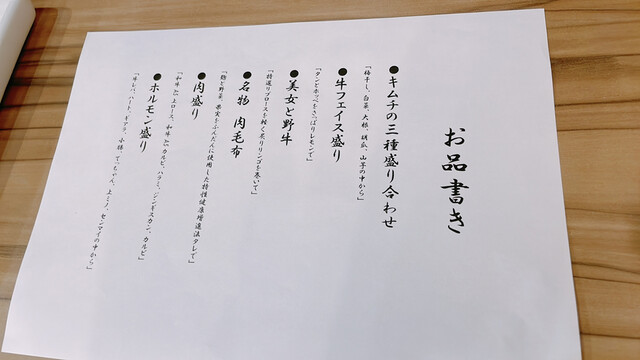 お品書き
●キムチの三種盛り合わせ
「梅干し、白菜、大根、胡瓜、山芋の中から」
●牛フェイス盛り
「タンとホッペをさっぱりレモンで」
●美女と野牛
「特選リブロースを軽く炙りリンゴを巻いて」
●名物 肉毛布
「麹と野菜 果実をふんだんに使用した特性健康増進法タレで」
●肉盛り
「和牛 上ロース、和牛 カルビ、ハラミ、ジンギスカン、カルビ」
●ホルモン盛り
「牛レバ、ハート、ギアラ、小腸、てっちゃん、上ミノ、センマイの中から」